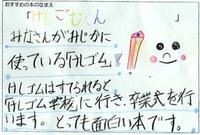 おすすめの本のなまえ
「けしごむくん」
みなさんがおじかに
使っている「けしゴム」!
けしゴムはすてられると
「けしゴム学校」に行き、卒業式を行
います。とっても面白い本です。